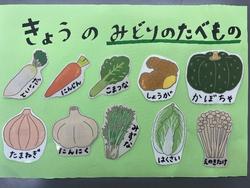 きょうの みどりのたべもの
だいこん
にんじん
こまつな
しょうが
かぼちゃ
たまねぎ
にんにく
みずな
はくさい
えのきたけ